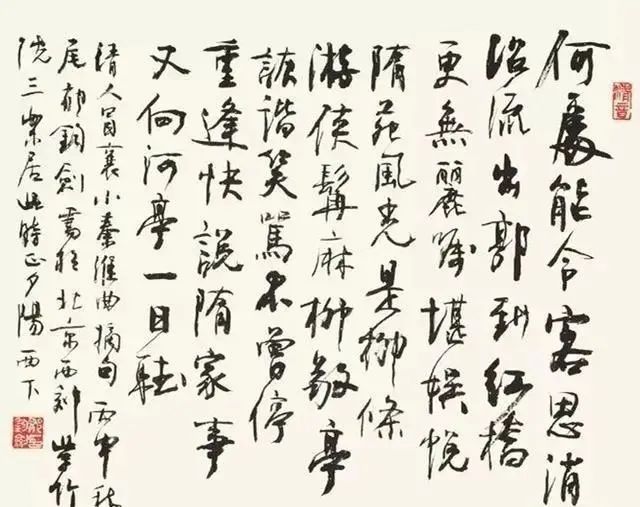 何處能令客思消
沿流出郭到紅橋
更無麗矚堪娛悅
隋苑風光是柳條
游俠髯麻柳敬亭
詼諧笑罵不曾停
重逢快說隋家事
又向河亭一日聽
清人冒襄小秦淮曲摘句 丙申秋
尾郁鈞劍書於北京西郊學竹
院三居此時正夕陽西下